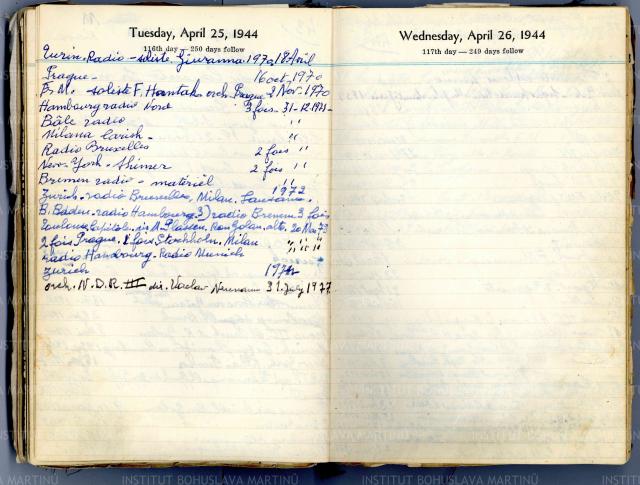 Tuesday, April 25, 1944
116th day — 250 days follow
Turin. Radio - soliste, Giuranna 1970 18 Avril
Prague - 16 oct. 1970
B. M. soliste F. Hantak orch. Prague 2 Nov. 1970
Hambourg radio Nord 3 fois - 31-12.1971 -
Bâle radio "
Milana
Radio Bruxelles 2 fois "
New-York - Shimer 2 fois "
Bremen radio - matériel "
Zurich - radio Bruxelles, Milan, Lausanne. 1972
B. Baden - radio Hambourg 3) radio Bremen 3 fois
Toulouse Capitole. dir. M. Plasson, Ron Golan. alt. 20 Mar 73
2 fois Prague. 2 fois Stockholm, Milan " " "
radio Hambourg. Radio Munich
Zurich
orch. N. D. R. III dir. Vaclav Neumann 31. July 1977
Wednesday, April 26, 1944
117th day — 249 days follow
INSTITUT BOHUSLAVA MARTINŮ